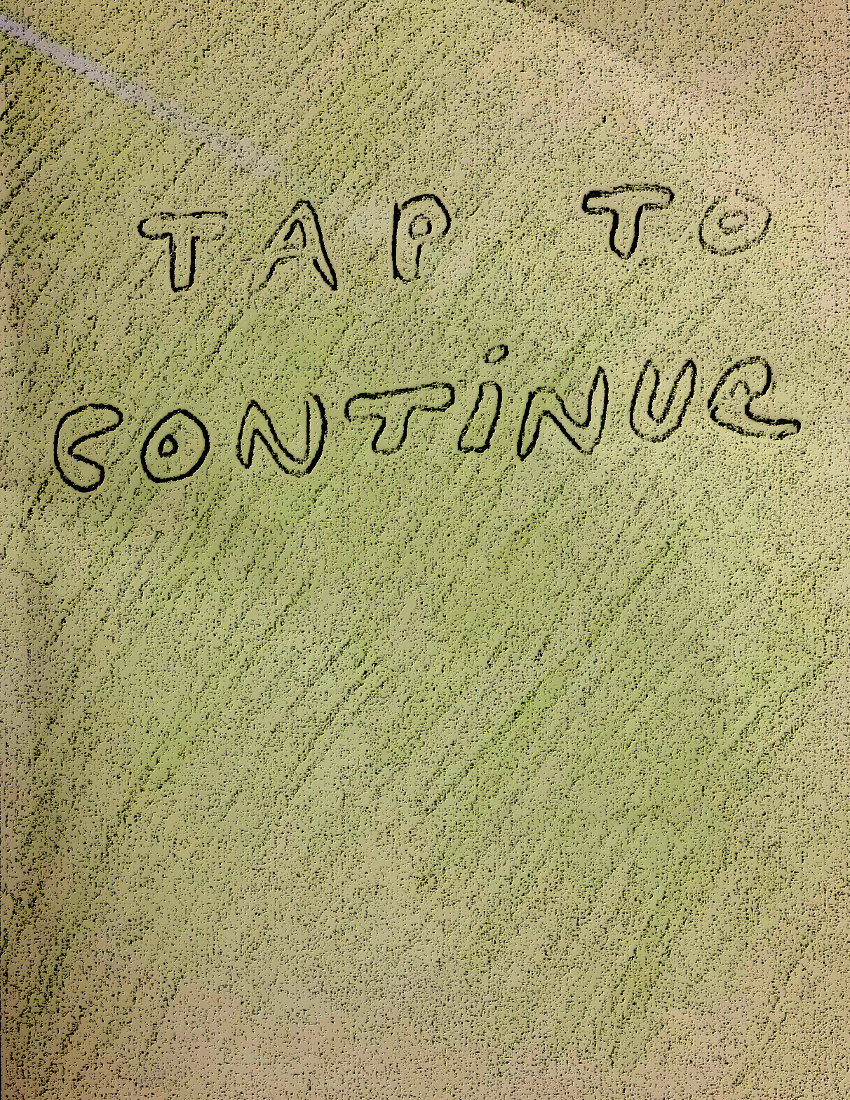 TAP TO
CONTiNUe